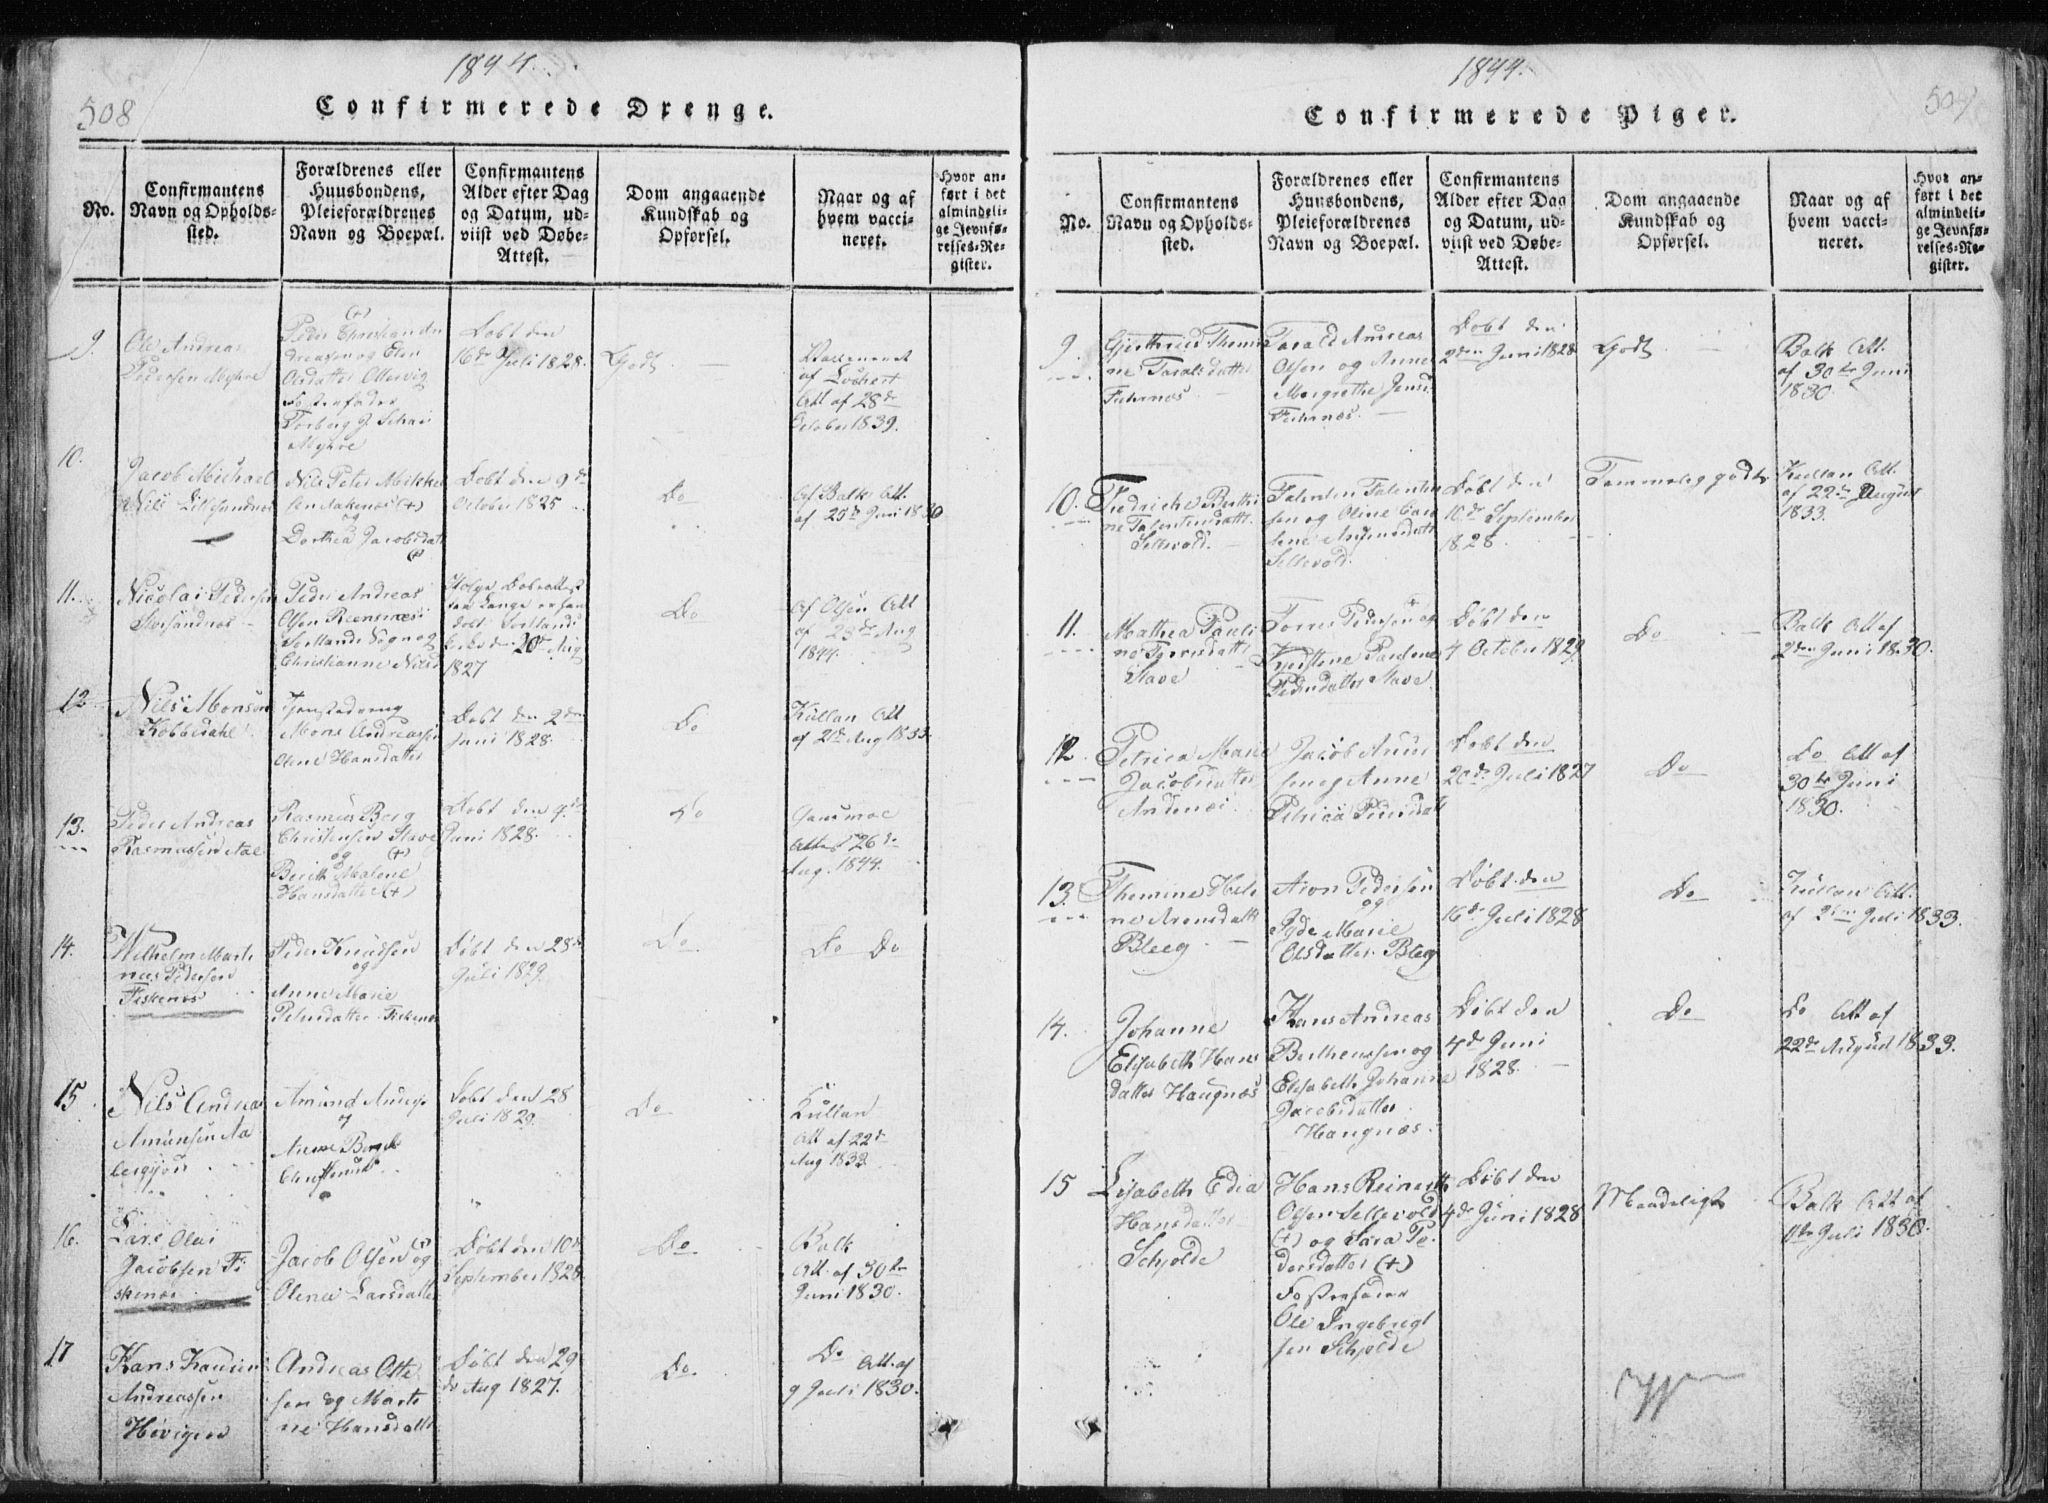 1844.
508
Confirmerede Drenge.
No.
Confirmantens
Navn og Opholds-
sted.
Forældrenes eller
Huusbondens,
Pleieforældrenes
Navn og Boepæl.
Confirmantens
Alder efter Dag
og Datum, ud-
viist ved Døbe-
Attest.
Dom angaaende
Kundskab og
Opførsel.
Naar og af
hvem vacci-
neret.
Hvor an-
ført i det
almindeli-
ge Jevnfø-
relses-Re-
gister.
9.
Ole Andreas
Pedersen Myhre
(+)
Peder Christian An
dreasen og Elen
Olsdatter
Fosterfader
Myhre
Døbt den
16de Juli 1828.
Godt
Vaccineret
af Lochert
Att af 28de
October 1839.
10.
Jacob Michael
Nils
Nils Peter Mikkel
sen (+)
og
Dorthea Jacobsdatt
(+)
Døbt den 9de
October 1825
Do
Af Balk Att.
af 25de Juni 1830
11.
Nicolai Pedersen
Peder Andreas
Olsen Reensnes
Sortlands Sogn og
Christianne Nilsd
Ifølge Døbeattest
fra Lange er han
døbt i Sortlands
Kirke d. 20de Aug
1827
Do
Af Olsen Att
af 28de Aug
1844.
12
Nils Monsen
Kobbedahl
Tjenstedreng
Mons Andreassen
Olene Hansdatter
Døbt den 2den
Juni 1828.
Do
Kullan Att
af 21de Aug 1833
13.
Peder Andreas
Rasmussen Aae
Rasmus Berg
Christensen Stave
og (+)
Berith Malene
Hansdatter (+)
Døbt den 4de
Juni 1828.
Do
Attest 26de
Aug. 1844.
14.
Wilhelm Marti
nus Pedersen
Fiskenes
Peder Knudsen
og
Anne Marie
Petersdatter Fiskenes
Døbt den 28de
Juli 1829.
Do
Do Do
15.
Nils Andrea
Amunsen Aa
Amund Anders
og
Anne Bergit
Døbt den 28
Juli 1829.
Do
Kullan
Att af 22de
Aug 1833
16.
Lars Olai
Jacobsen Fi
skenes
Jacob Olsen (+) og
Olena Larsdatter
Døbt den 10de
September 1828
Do
Balk
Att. af 30te
Juni 1830.
17
Hans
Andreassen
Andreas Otte
sen og Marti
ne Hansdatter
Døbt den 29
de Aug 1827.
Do
Do Att. af
9 Juli 1830.
1844.
Confirmerede Piger.
No.
Confirmantens
Navn og Opholds-
sted.
Forældrenes eller
Huusbondens,
Pleieforældrenes
Navn og Boepæl.
Confirmantens
Alder efter Dag
og Datum, ud-
viist ved Døbe-
Attest.
Dom angaaende
Kundskab og
Opførsel.
Naar og af
hvem vacci-
neret.
Hvor an-
ført i det
almindeli-
ge Jevnfø-
relses-Re-
gister.
9.
Gjertrud Thomi
ne Taralsdatter
Tarald Andreas
Olsen og Anne
Margrethe Jensd
Døbt den
2den Juni 1828
Godt
Balk Att.
af 30te Juni
1830
10.
Fredricke Berthi
ne Falentinsdatt.
Sellevold.
Falentin Falentin
sen og Oline Caro
line
Sellevold
Døbt den
10de September
1828
Temmelig godt
Kullan Att.
af 22de August
1833.
11.
Mathea Pauli
ne Torrisdatt
Stave
Torris Pedersen og
Kjerstine Pauline
Pedersdatter Stave
Døbt den
4 October 1829
Do
Balk Att af
2den Juni 1830.
12.
Petrica Mane
Jacobsdatter
Andenes
Jacob
sen og Anne
Petrica Pedersdatt
Døbt den
20de Juli 1827
Do
Do Att af
30te Juni
1830.
13.
Thomine Hele
ne Aronsdatt
Bleeg
Aron Pedersen
og
Marie
Olsdatter Bleeg
Døbt den
16de Juli 1828
Do
Kullan Att.
af Juli 1833.
14.
Johanne
Elisabeth Hans
datter Haugnæs
Hans Andreas
Berthenssen og
Elisabeth Johanne
Jacobsdatter
Haugnæs.
Døbt den
4de Juni
1828
Do
Do Att af
22de August 1833.
15
Lisabeth Edia
Hansdatter
Schjolde
Hans Reinerth
Olsen Sellevold
(+) og Sara Pe
dersdatter (+)
Fosterfader
Ole Ingebrigt
sen Schjolde
Døbt den
4de Juni 1828
Maadeligt
Balk Att af
Juli 1830.